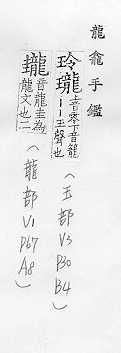 龍龕手鑑
玲瓏
上音零下音籠
｜｜玉聲也
（玉部V3P30B4）
瓏
音龍圭為
龍文也二
（龍部V1P67A8）